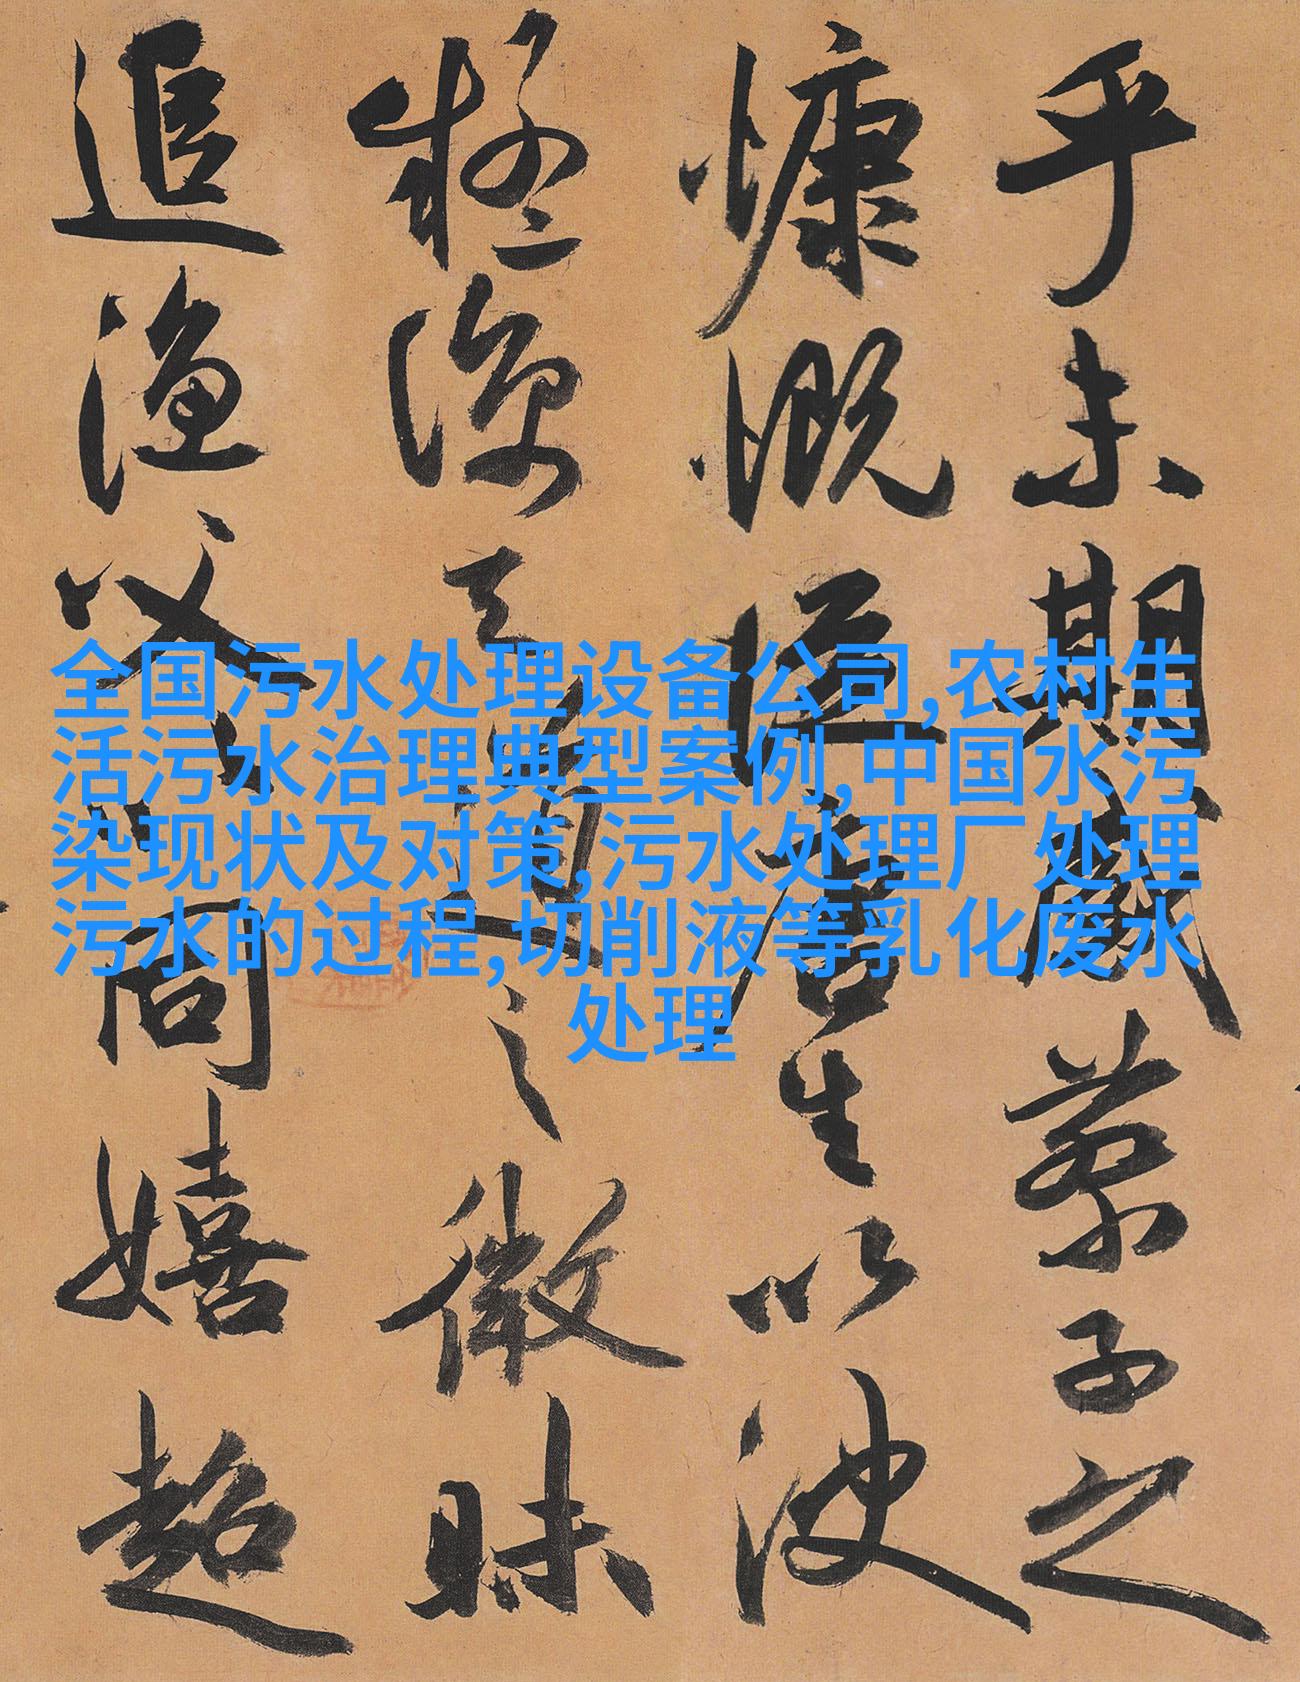 全国污水处理设备公司,农村生
活污水治理典型案例,中国水污
染现状及对策,污水处理厂处理
污水的过程,切削液等乳化废水
处理
乎未期感蔡子之
慷慨從唐生以決
疑諒天道之微昧
追漁父以同嬉超